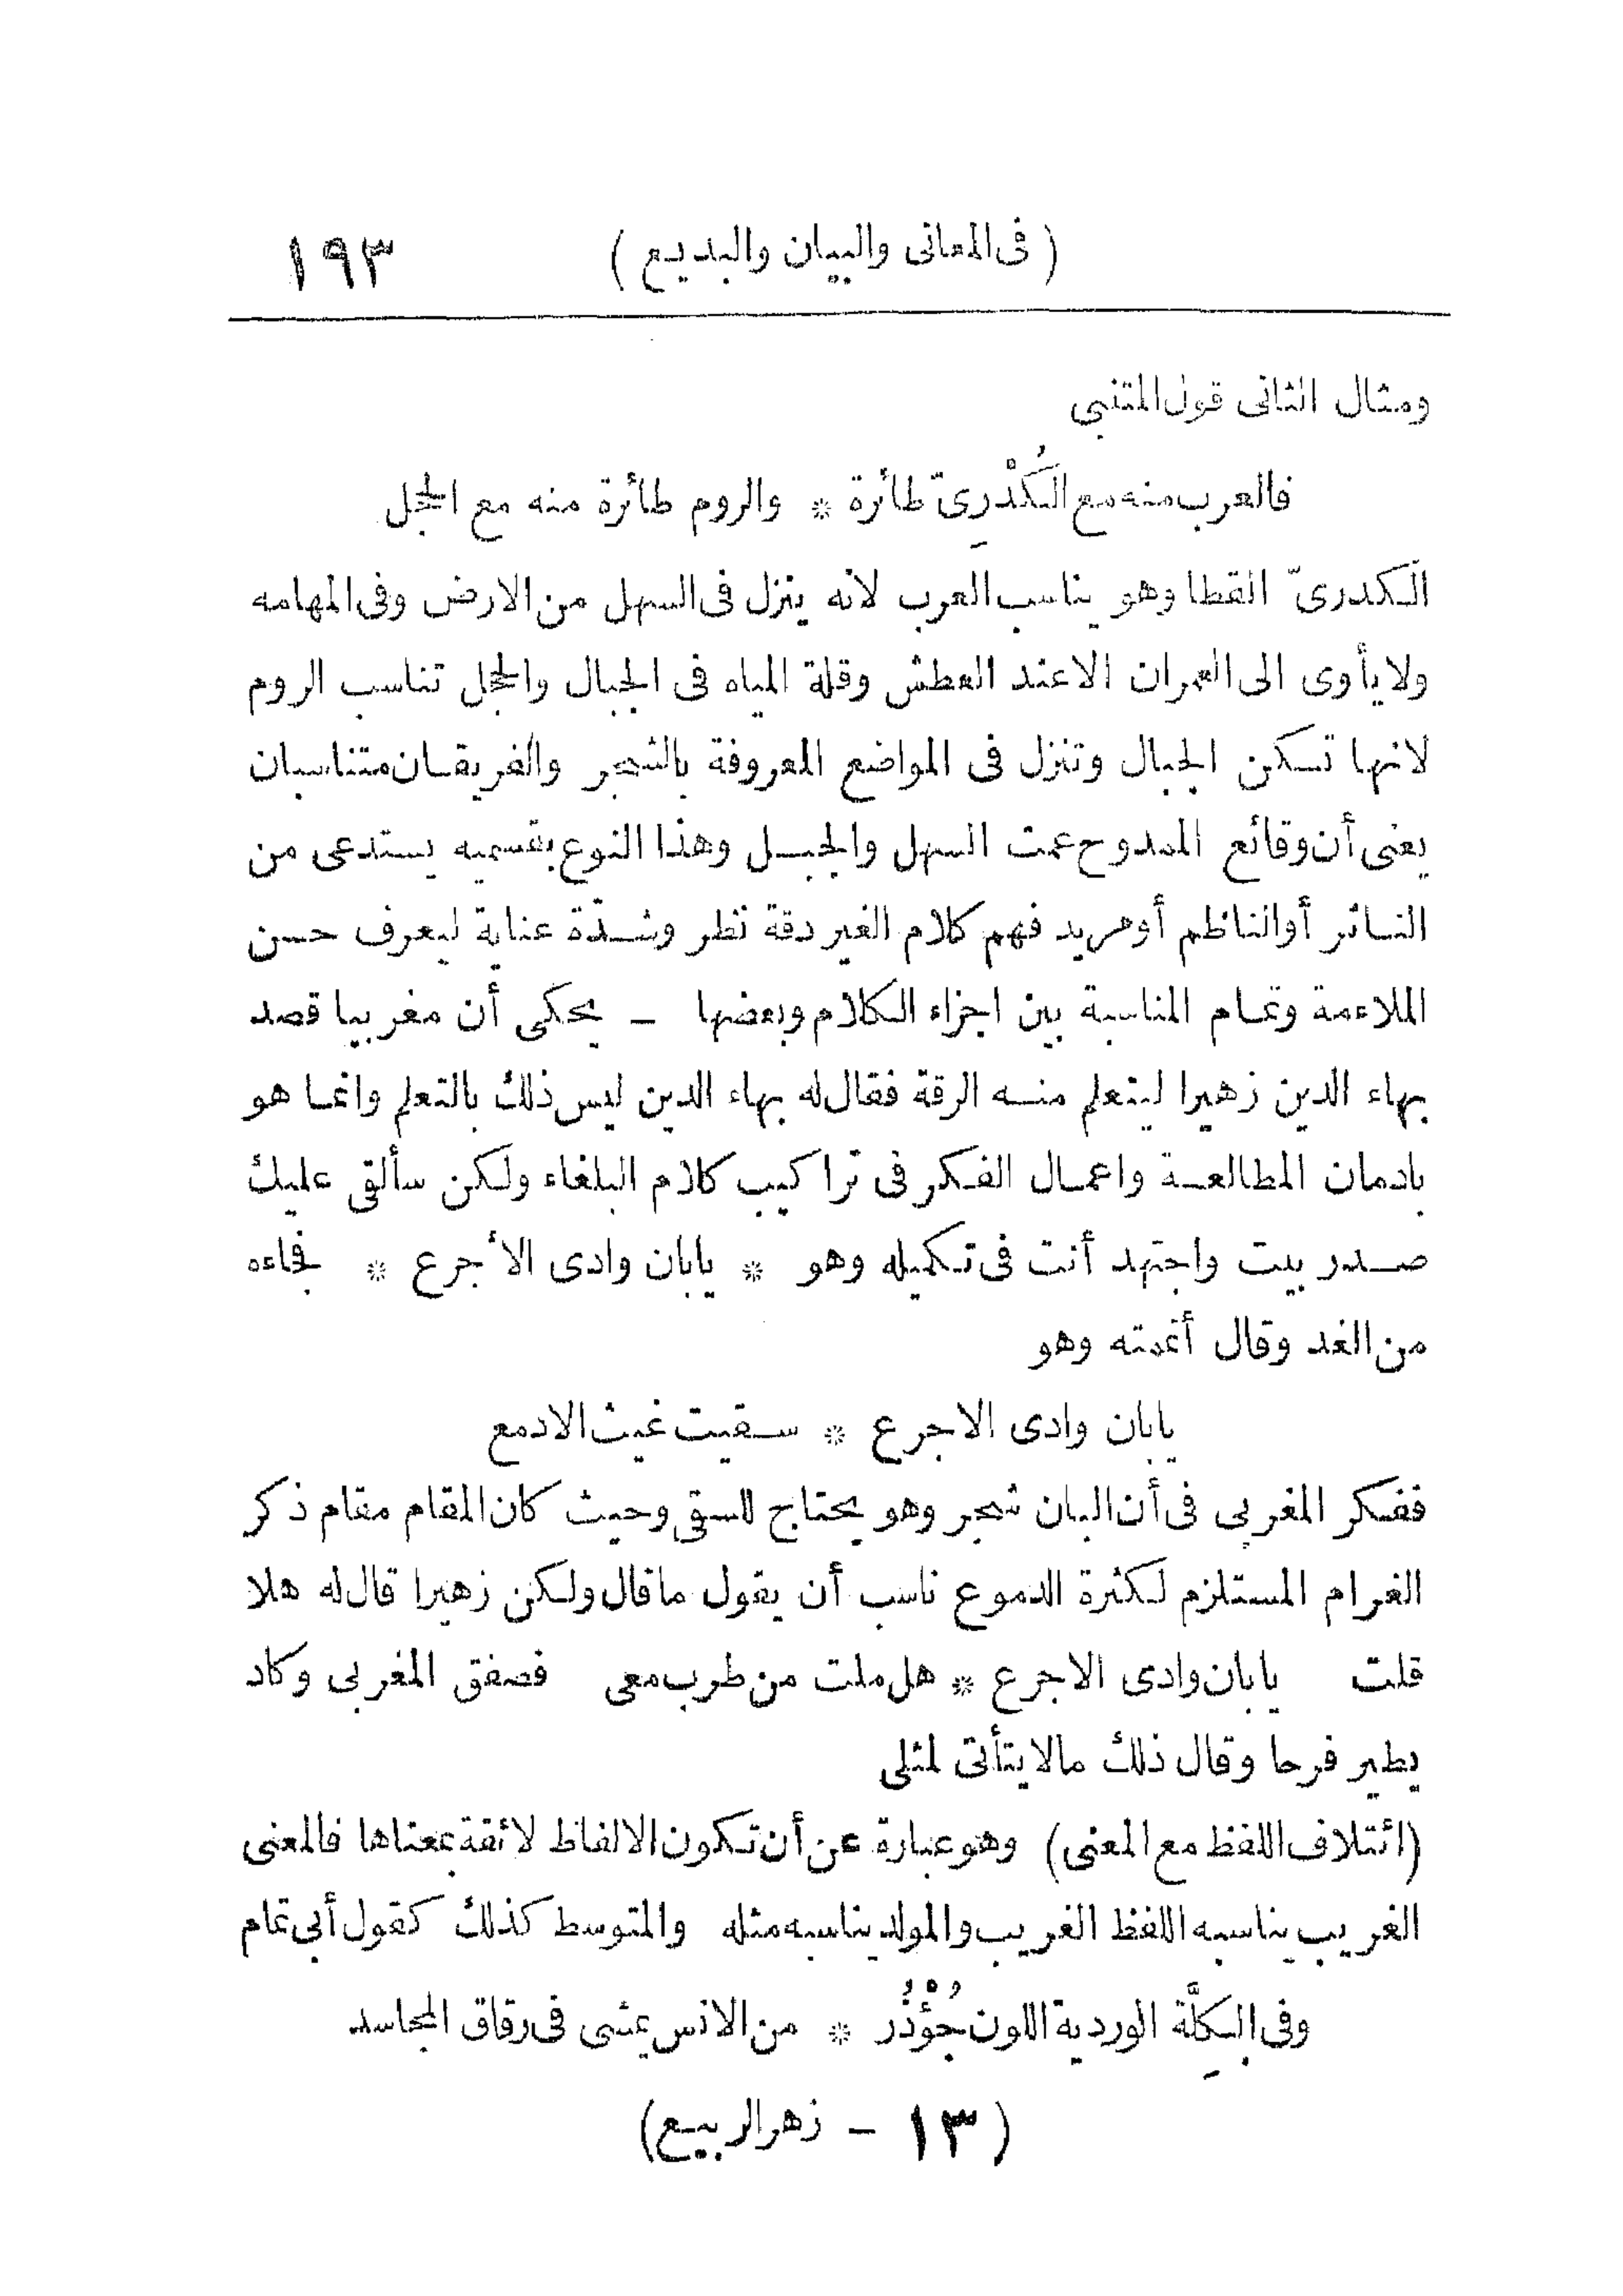 ( فى المعانى والبيان والبديع ) ١٩٣
ومثال الثانى قول المتنبى
فالعرب منه مع الكُدْرِىّ طائرة * والروم طائرة منه مع الحجل
الكدرىّ القطا وهو يناسب العرب لانه ينزل فى السهل من الارض وفى المهامه
ولا يأوى الى العمران الاعند العطش وقلة المياه فى الجبال والحجل تناسب الروم
لانها تسكن الجبال وتنزل فى المواضع المعروفة بالشجر والفريقان متناسبان
يعنى أن وقائع الممدوح عمت السهل والجبل وهذا النوع بقسميه يستدعى من
الناثر أوالناظم أومريد فهم كلام الغير دقة نظر وشدّة عناية ليعرف حسن
الملاءمة وتمام المناسبة بين اجزاء الكلام وبعضها — يحكى أن مغربيا قصد
بهاء الدين زهيرا ليتعلم منه الرقة فقال له بهاء الدين ليس ذلك بالتعلم وانما هو
بادمان المطالعة واعمال الفكر فى تراكيب كلام البلغاء ولكن سألقى عليك
صدر بيت واجتهد أنت فى تكميله وهو * يابان وادى الأجرع * فجاءه
من الغد وقال أتممته وهو
يابان وادى الاجرع * سقيت غيث الادمع
ففكر المغربى فى أن البان شجر وهو يحتاج للسقى وحيث كان المقام مقام ذكر
الغرام المستلزم لكثرة الدموع ناسب أن يقول ماقال ولكن زهيرا قال له هلا
قلت يابان وادى الاجرع * هل ملت من طرب معى فصفق المغربى وكاد
يطير فرحا وقال ذلك مالا يتأتى لمثلى
(ائتلاف اللفظ مع المعنى) وهو عبارة عن أن تكون الالفاظ لائقة بمعناها فالمعنى
الغريب يناسبه اللفظ الغريب والمولد يناسبه مثله والمتوسط كذلك كقول أبى تمام
وفى الكِلَّة الوردية اللون جُؤْذُر * من الانس يمشى فى رقاق المجاسد
( ١٣ — زهر الربيع)